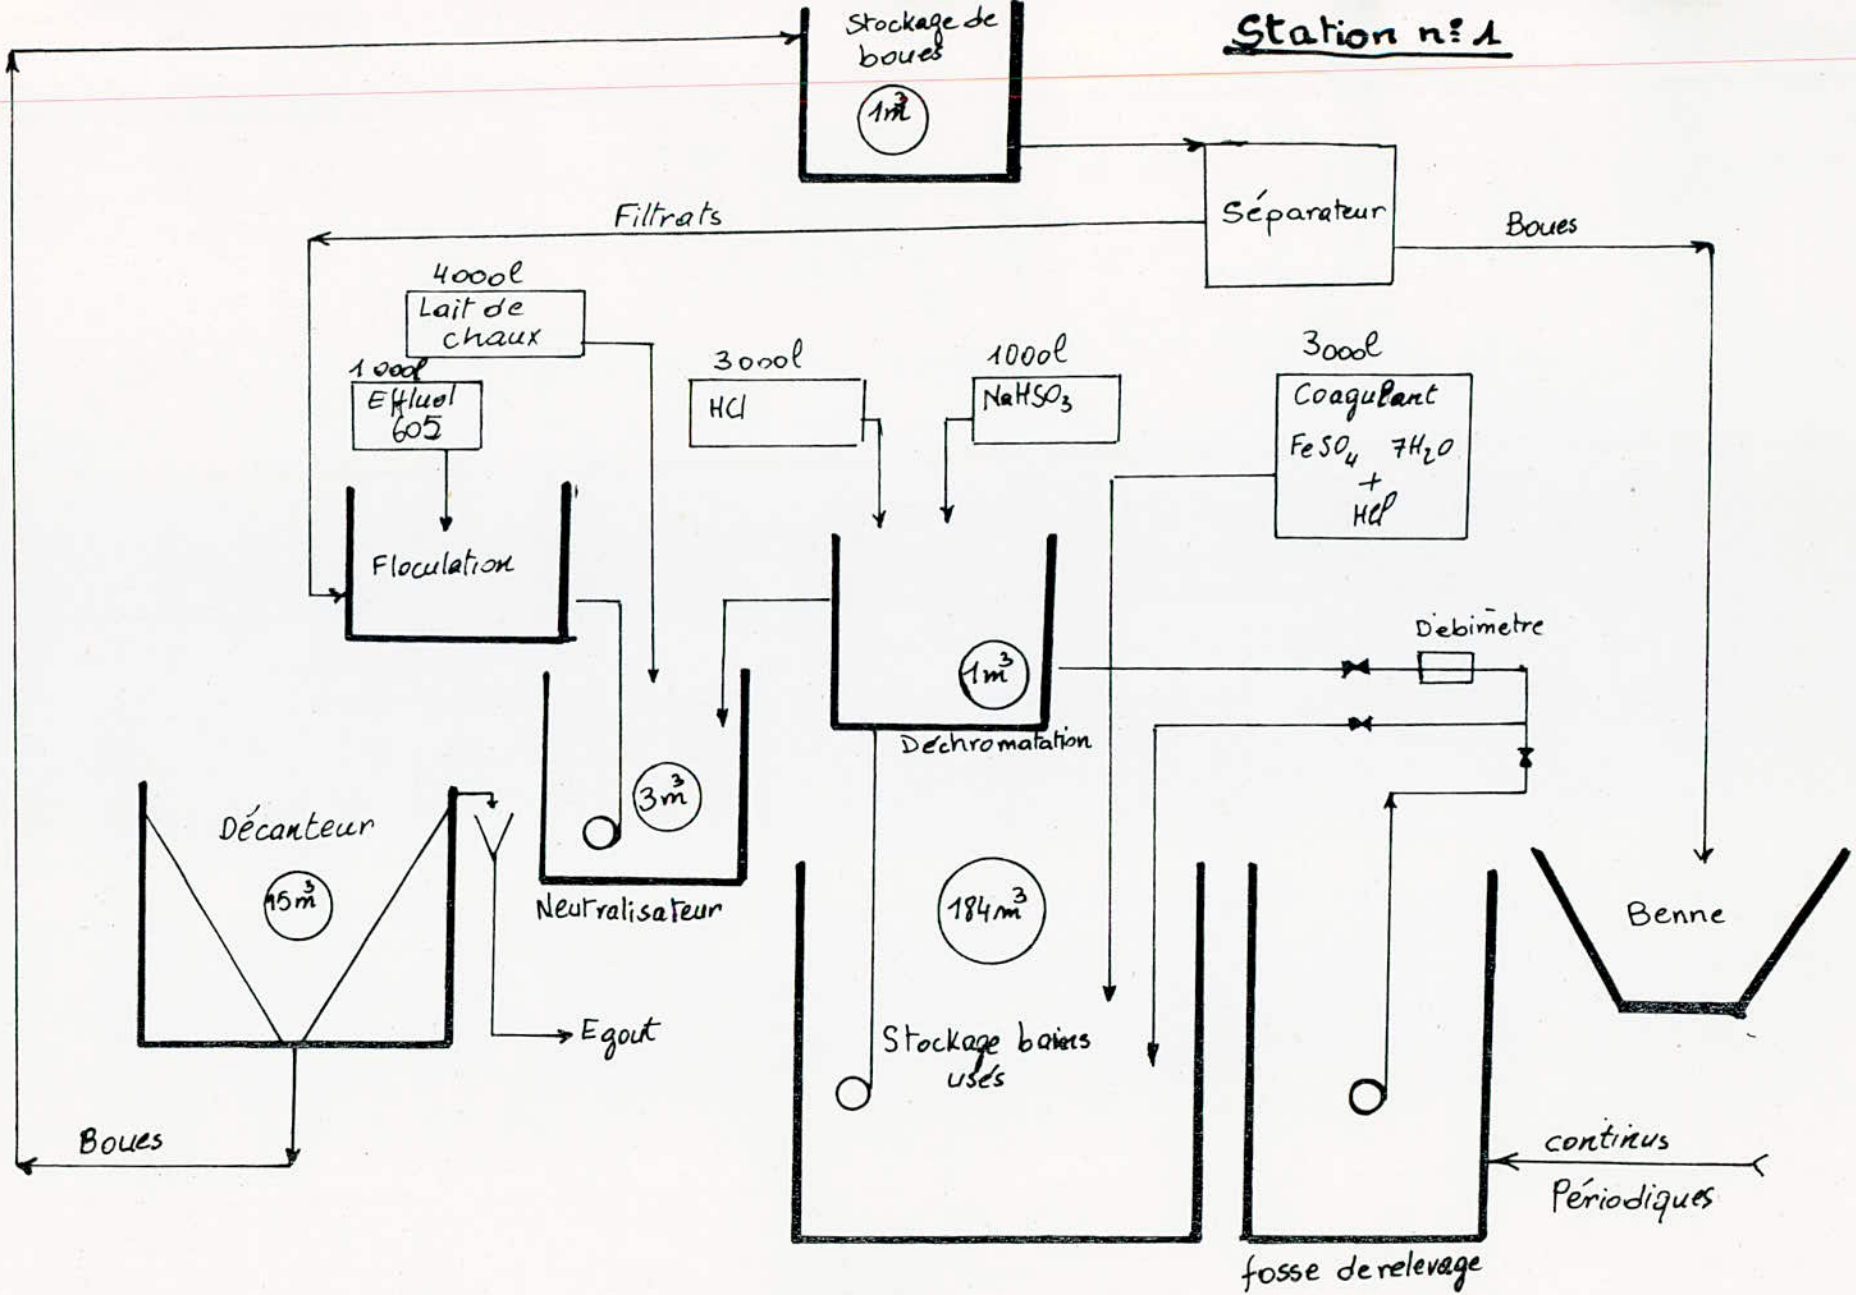 Station n: 1
Stockage de
boues
1m³
Séparateur
Filtrats
Boues
4000l
Lait de
chaux
1000l
Effluol
605
3000l
HCl
1000l
NaHSO₃
3000l
Coagulant
FeSO₄ 7H₂O
+
HCl
Floculation
Débimètre
1m³
Déchromatation
3m³
Neutralisateur
Décanteur
15m³
184m³
Benne
Egout
Stockage bains
usés
Boues
continus
Périodiques
fosse de relevage